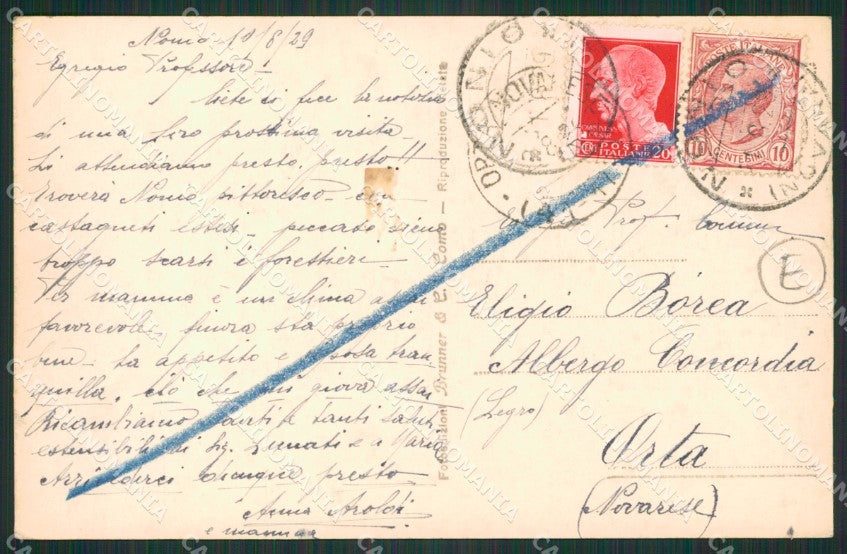 Nonio 19/8/29
Egregio Professore!
Liete ci fece la notizia
di una loro prossima visita
La attendiamo presto, presto!!
troverà Nonio pittoresco - con
castagneti estesi - peccato siano
troppo scarsi i forestieri
Per mamma è un clima assai
favorevole, finora sta proprio
bene - ha appetito e posa tran
quilla. Ciò che mi giova assai
Ricambiamo tanti e tanti saluti
estensibili di Sig. Lunati e a Maria
Arrivederci dunque presto
Anna Aroldi
e mamma
Fotoedizioni Brunner & C. Como - Riproduzione vietata
POSTE
ITALIANE
CENT 20
POSTE ITALIANE
10 CENTESIMI 10
NONIO
(NOVARA)
Prof.
Eligio Bórea
Albergo Concordia
(Legro)
Orta
(Novarese)
E
CARTOLINOMANIA